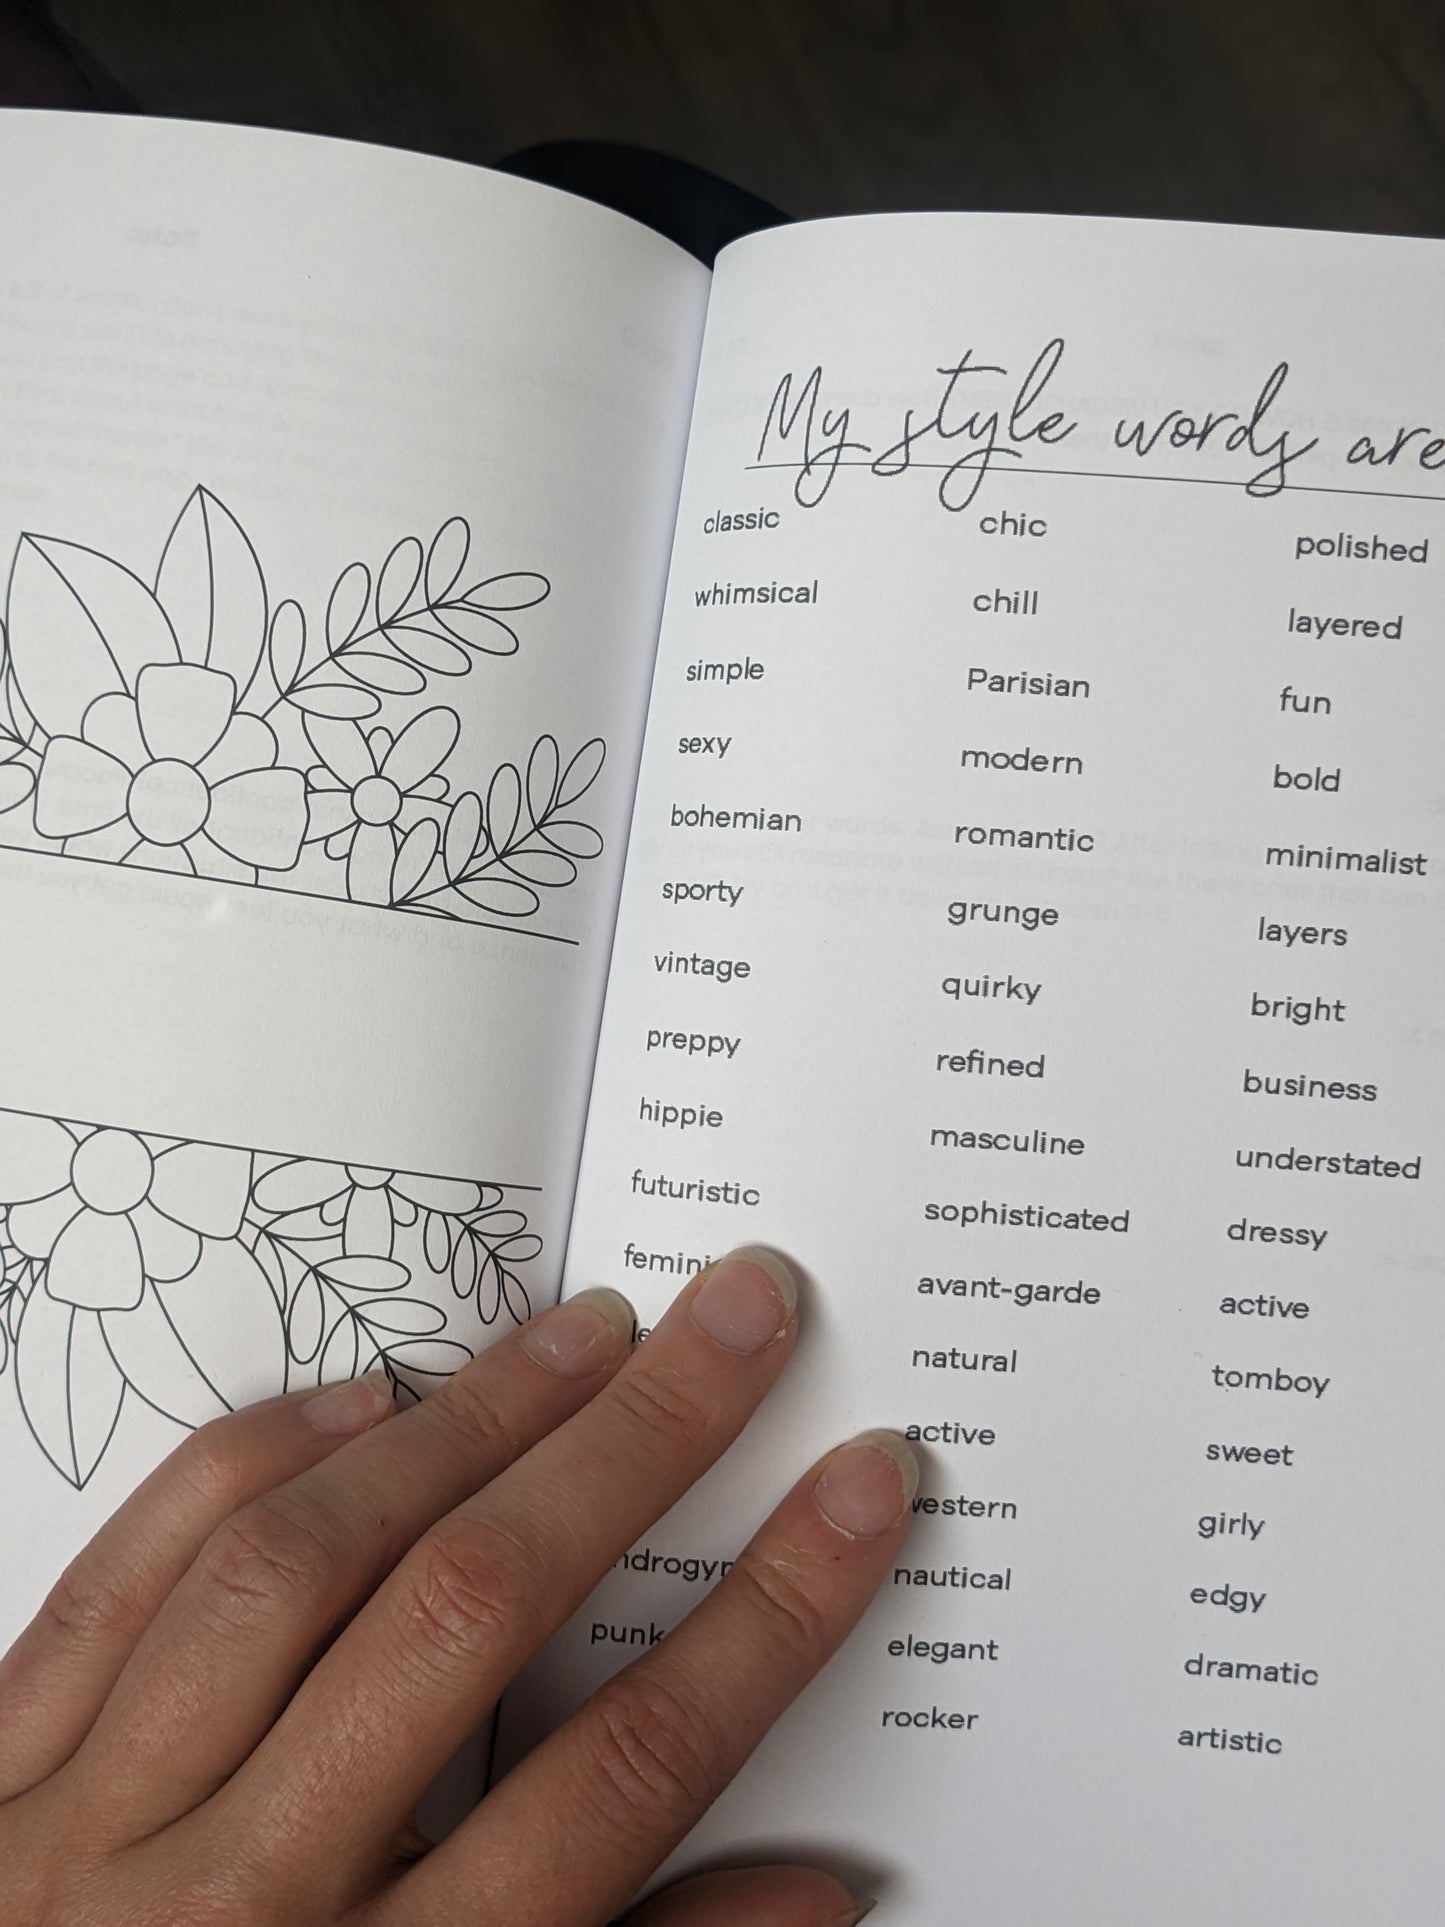 My style words are
classic chic polished
whimsical chill layered
simple Parisian fun
sexy modern bold
bohemian romantic minimalist
sporty grunge layers
vintage quirky bright
preppy refined business
hippie masculine understated
futuristic sophisticated dressy
avant-garde active
natural tomboy
active sweet
girly
nautical edgy
punk elegant dramatic
rocker artistic